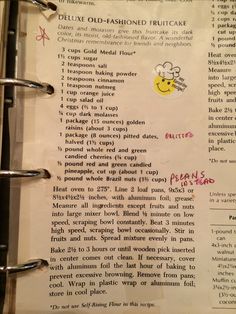 DELUXE OLD-FASHIONED FRUITCAKE
Dates and molasses give this fruitcake its dark
color, its moist, old-fashioned flavor. A wonderful
Christmas remembrance for friends and neighbors.
3 cups Gold Medal Flour*
1⅓ cups sugar
2 teaspoons salt
1 teaspoon baking powder
2 teaspoons cinnamon
1 teaspoon nutmeg
1 cup orange juice
1 cup salad oil
4 eggs (⅔ to 1 cup)
¼ cup dark molasses
1 package (15 ounces) golden
raisins (about 3 cups)
1 package (8 ounces) pitted dates,
halved (1½ cups)
OMITTED
½ pound whole red and green
candied cherries (¾ cup)
½ pound red and green candied
pineapple, cut up (about 1 cup)
½ pound whole Brazil nuts (1½ cups)
PECANS
INSTEAD
Heat oven to 275°. Line 2 loaf pans, 9x5x3 or
8½x4½x2½ inches, with aluminum foil; grease.
Measure all ingredients except fruits and nuts
into large mixer bowl. Blend ½ minute on low
speed, scraping bowl constantly. Beat 3 minutes
high speed, scraping bowl occasionally. Stir in
fruits and nuts. Spread mixture evenly in pans.
Bake 2½ to 3 hours or until wooden pick inserted
in center comes out clean. If necessary, cover
with aluminum foil the last hour of baking to
prevent excessive browning. Remove from pans;
cool. Wrap in plastic wrap or aluminum foil;
store in cool place.
*Do not use Self-Rising Flour in this recipe.